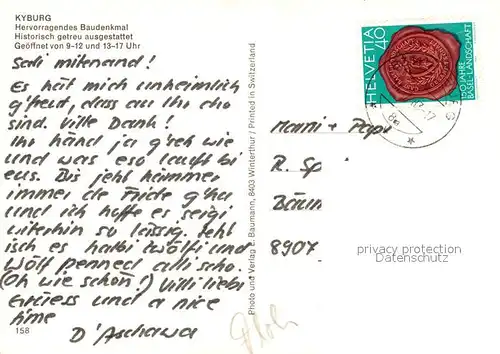 KYBURG
Hervorragendes Baudenkmal
Historisch getreu ausgestattet
Geöffnet von 9-12 und 13-17 Uhr
Sali mitenand!
Es hät mich unheimlich
g'freut, dass au Ihr cho
sind. Ville Dank!
Ihr händ ja g'seh wie
und was eso lauft bi
eus. Bis jeht hämmer
immer de Fride g'ha
und ich hoffe es seigi
witerhin so lässig. Jeht
isch es halbi zwölfi und
Wölf penned alli scho.
(Oh wie schön!) Villi liebi
Grüess und a nice
time
D'Aschawa
158
Photo und Verlag E. Baumann, 8403 Winterthur / Printed in Switzerland
HELVETIA 40
150 JAHRE
BASEL-LANDSCHAFT
Mami + Papi
R. Sp
Bäum
8907
privacy protection
Datenschutz